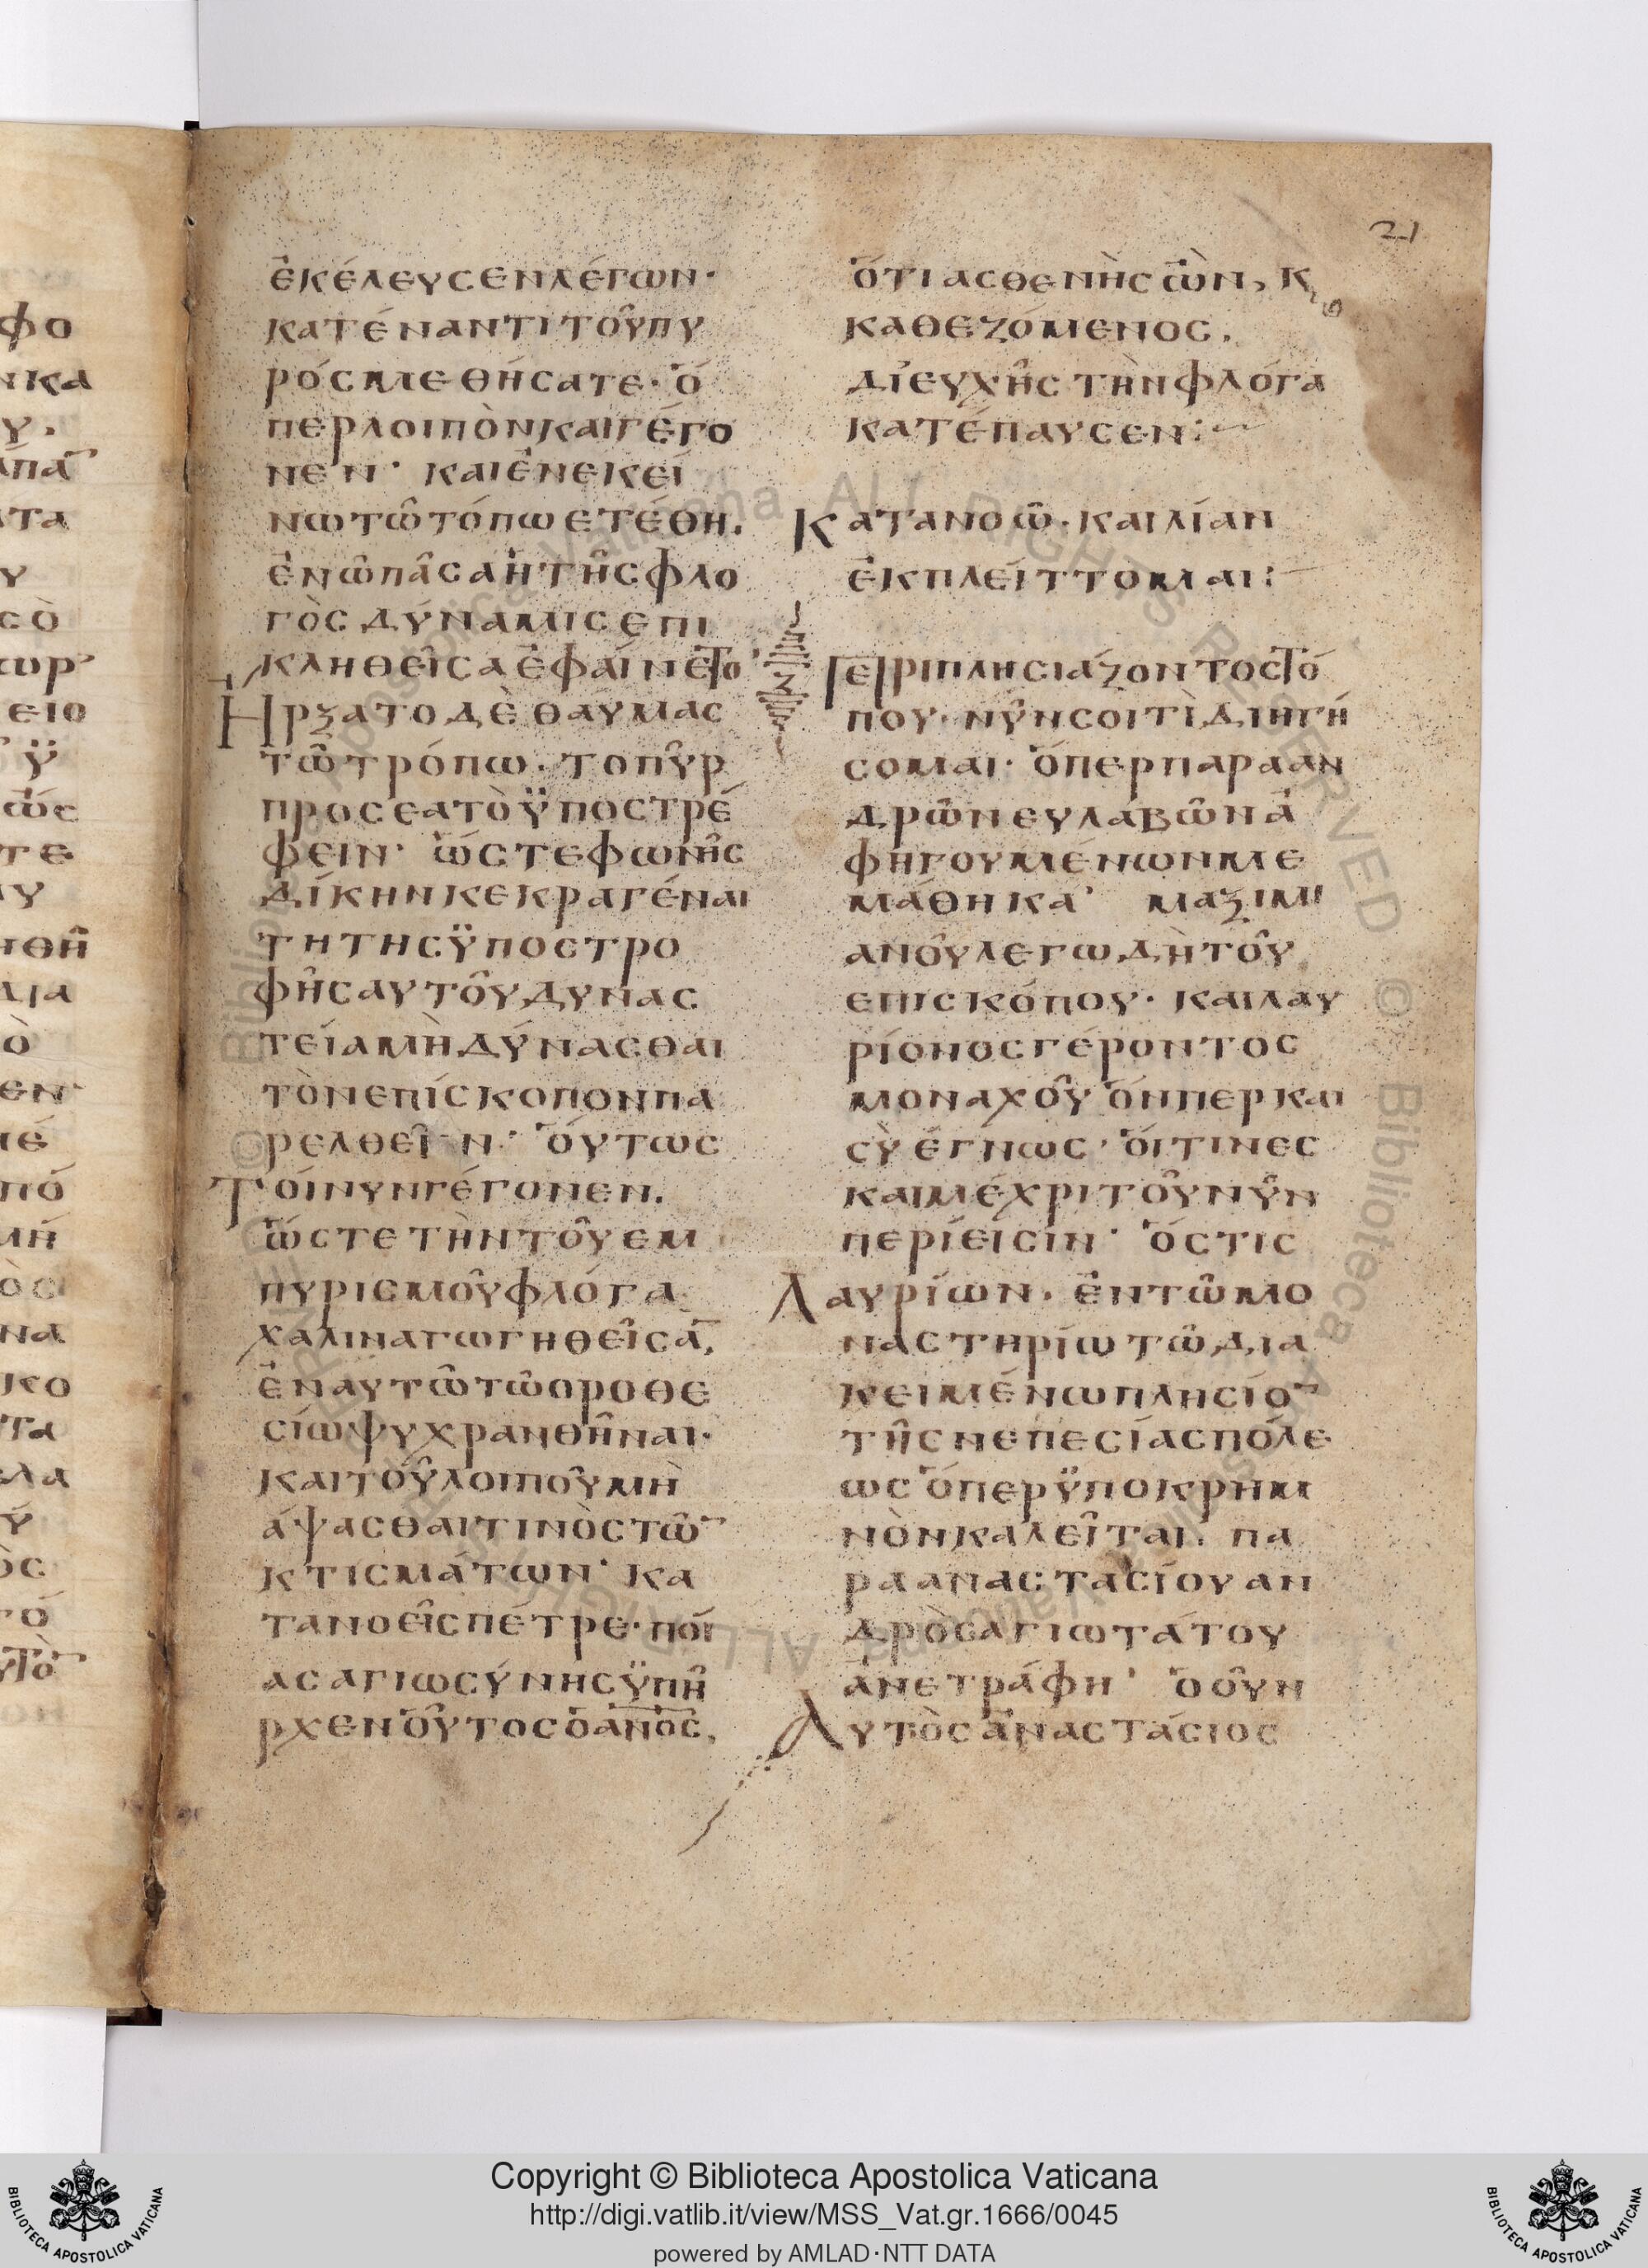 21
ἐκέλευσεν λέγων·
κατέναντι τοῦ πυ
ρός με θήσατε· ὅ
περ λοιπὸν καὶ γέγο
νεν· καὶ ἐν ἐκεί
νω τῶ τόπω ετέθη.
ἐν ῶ πᾶσα ἡ τῆς φλο
γὸς δύναμις επι
κληθεῖσα ἐφαίνετο·
Ηρξατο δὲ θαύμας
τῶ τρόπω· το πῦρ
προς εατὸ ϋποστρέ
φειν· ὥστε φωνῆς
δίκην κεκραγέναι
τη της ϋποστρο
φῆς αυτοῦ δυνας
τεία μὴ δύνασθαι
τὸν επίσκοπον πα
ρελθεῖν· ὅυτως
Τοίνυν γέγονεν.
ὥστε τὴν τοῦ εμ
πυρισμοῦ φλόγα
χαλιναγωγηθεῖσα̅,
ἐν αυτῶ τῶ οροθε
σίω ψυχρανθῆναι·
και τοῦ λοιποῦ μὴ
άψασθαι τινὸς τῶ̅
κτισμάτων· κα
τανοεῖς πέτρε· ποί
ας αγιωσύνης ϋπῆ
ρχεν οὗτος ὁ α̅ν̅ο̅ς̅,
ὅτι ασθενὴς ὢν, κ
καθεζόμενος,
δι' ευχῆς τὴν φλόγα
κατέπαυσεν:
Κατανοῶ· και λίαν
ἐκπλείττομαι:
Ζ
Περι πλησιάζοντος τό
που· νῦν σοι τὶ διηγή
σομαι· ὅπερ παρα αν
δρῶν ευλαβῶν ἀ
φηγουμένων με
μάθηκα· μαξιμι
ανοῦ λεγω δὴ τοῦ
επισκόπου· και λαυ
ρίονος γέροντος
μοναχοῦ ὅνπερ και
σὺ έγνως· ὅιτινες
και μέχρι τοῦ νῦν
περίεισιν· ὅστις
Λαυρίων· ἐν τῶ μο
ναστηρίω τῶ δια
κειμένω πλησίο̅
τῆς νεπεσίας πόλε
ως ὅπερ ϋποκρημ
νὸν καλεῖται· πα
ρα αναστασίου αν
δρὸς αγιωτάτου
ἀνετράφη· ὁ οῦν
Αυτὸς ἀναστάσιος
Copyright © Biblioteca Apostolica Vaticana
http://digi.vatlib.it/view/MSS_Vat.gr.1666/0045
powered by AMLAD·NTT DATA
BIBLIOTECA APOSTOLICA VATICANA
BIBLIOTECA APOSTOLICA VATICANA